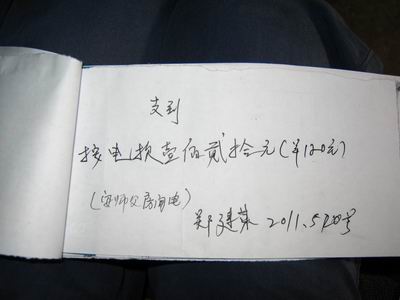 支到
接电款壹佰贰拾元(￥120元)
(安师父房间电)
郑建荣 2011.5月20号